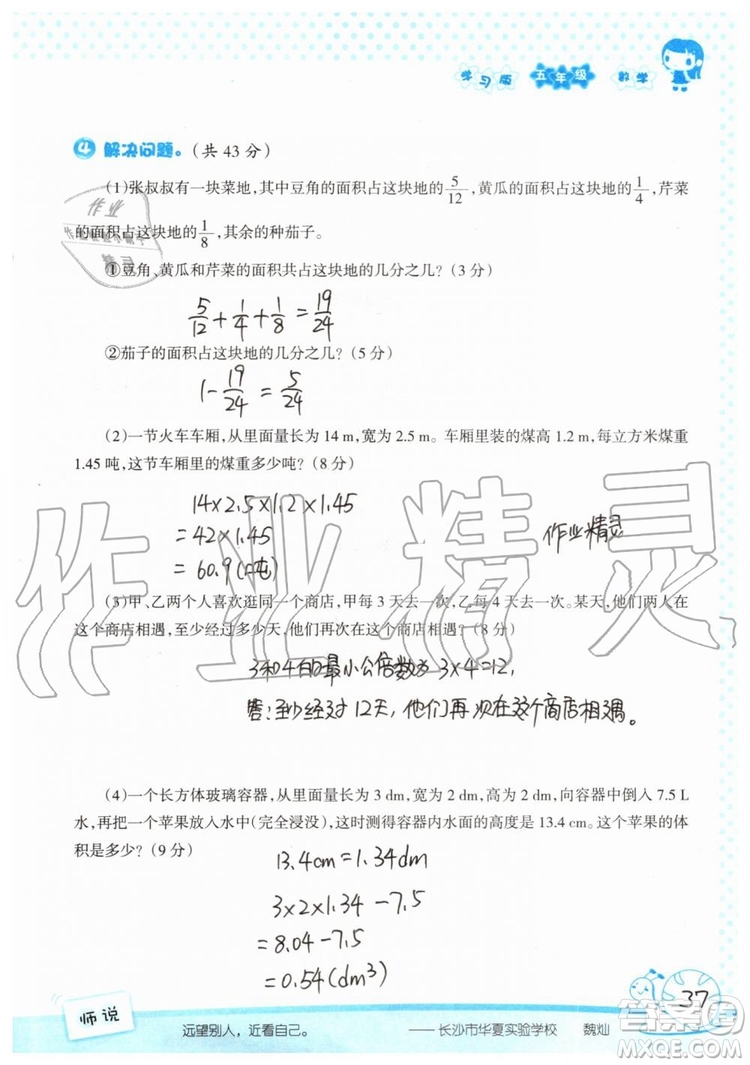 学习版 五年级 数学
4 解决问题。(共 43 分)
(1)张叔叔有一块菜地,其中豆角的面积占这块地的5/12,黄瓜的面积占这块地的1/4,芹菜
的面积占这块地的1/8,其余的种茄子。
①豆角、黄瓜和芹菜的面积共占这块地的几分之几?(3 分)
5/12+1/4+1/8=19/24
②茄子的面积占这块地的几分之几?(5 分)
1-19/24=5/24
(2)一节火车车厢,从里面量长为 14 m,宽为 2.5 m。车厢里装的煤高 1.2 m,每立方米煤重
1.45 吨,这节车厢里的煤重多少吨?(8 分)
14×2.5×1.2×1.45
=42×1.45
=60.9(吨)
作业精灵
(3)甲、乙两个人喜欢逛同一个商店,甲每 3 天去一次,乙每 4 天去一次。某天,他们两人在
这个商店相遇,至少经过多少天,他们再次在这个商店相遇?(8 分)
3和4的最小公倍数为3×4=12,
答:至少经过12天,他们再次在这个商店相遇。
(4)一个长方体玻璃容器,从里面量长为 3 dm,宽为 2 dm,向容器中倒入 7.5 L
水,再把一个苹果放入水中(完全浸没),这时测得容器内水面的高度是 13.4 cm。这个苹果的体
积是多少?(9 分)
13.4cm=1.34dm
3×2×1.34-7.5
=8.04-7.5
=0.54(dm³)
师说
远望别人,近看自己。 ——长沙市华夏实验学校 魏灿
37
作业精灵
作业
精灵
答案圈
MXQE.COM